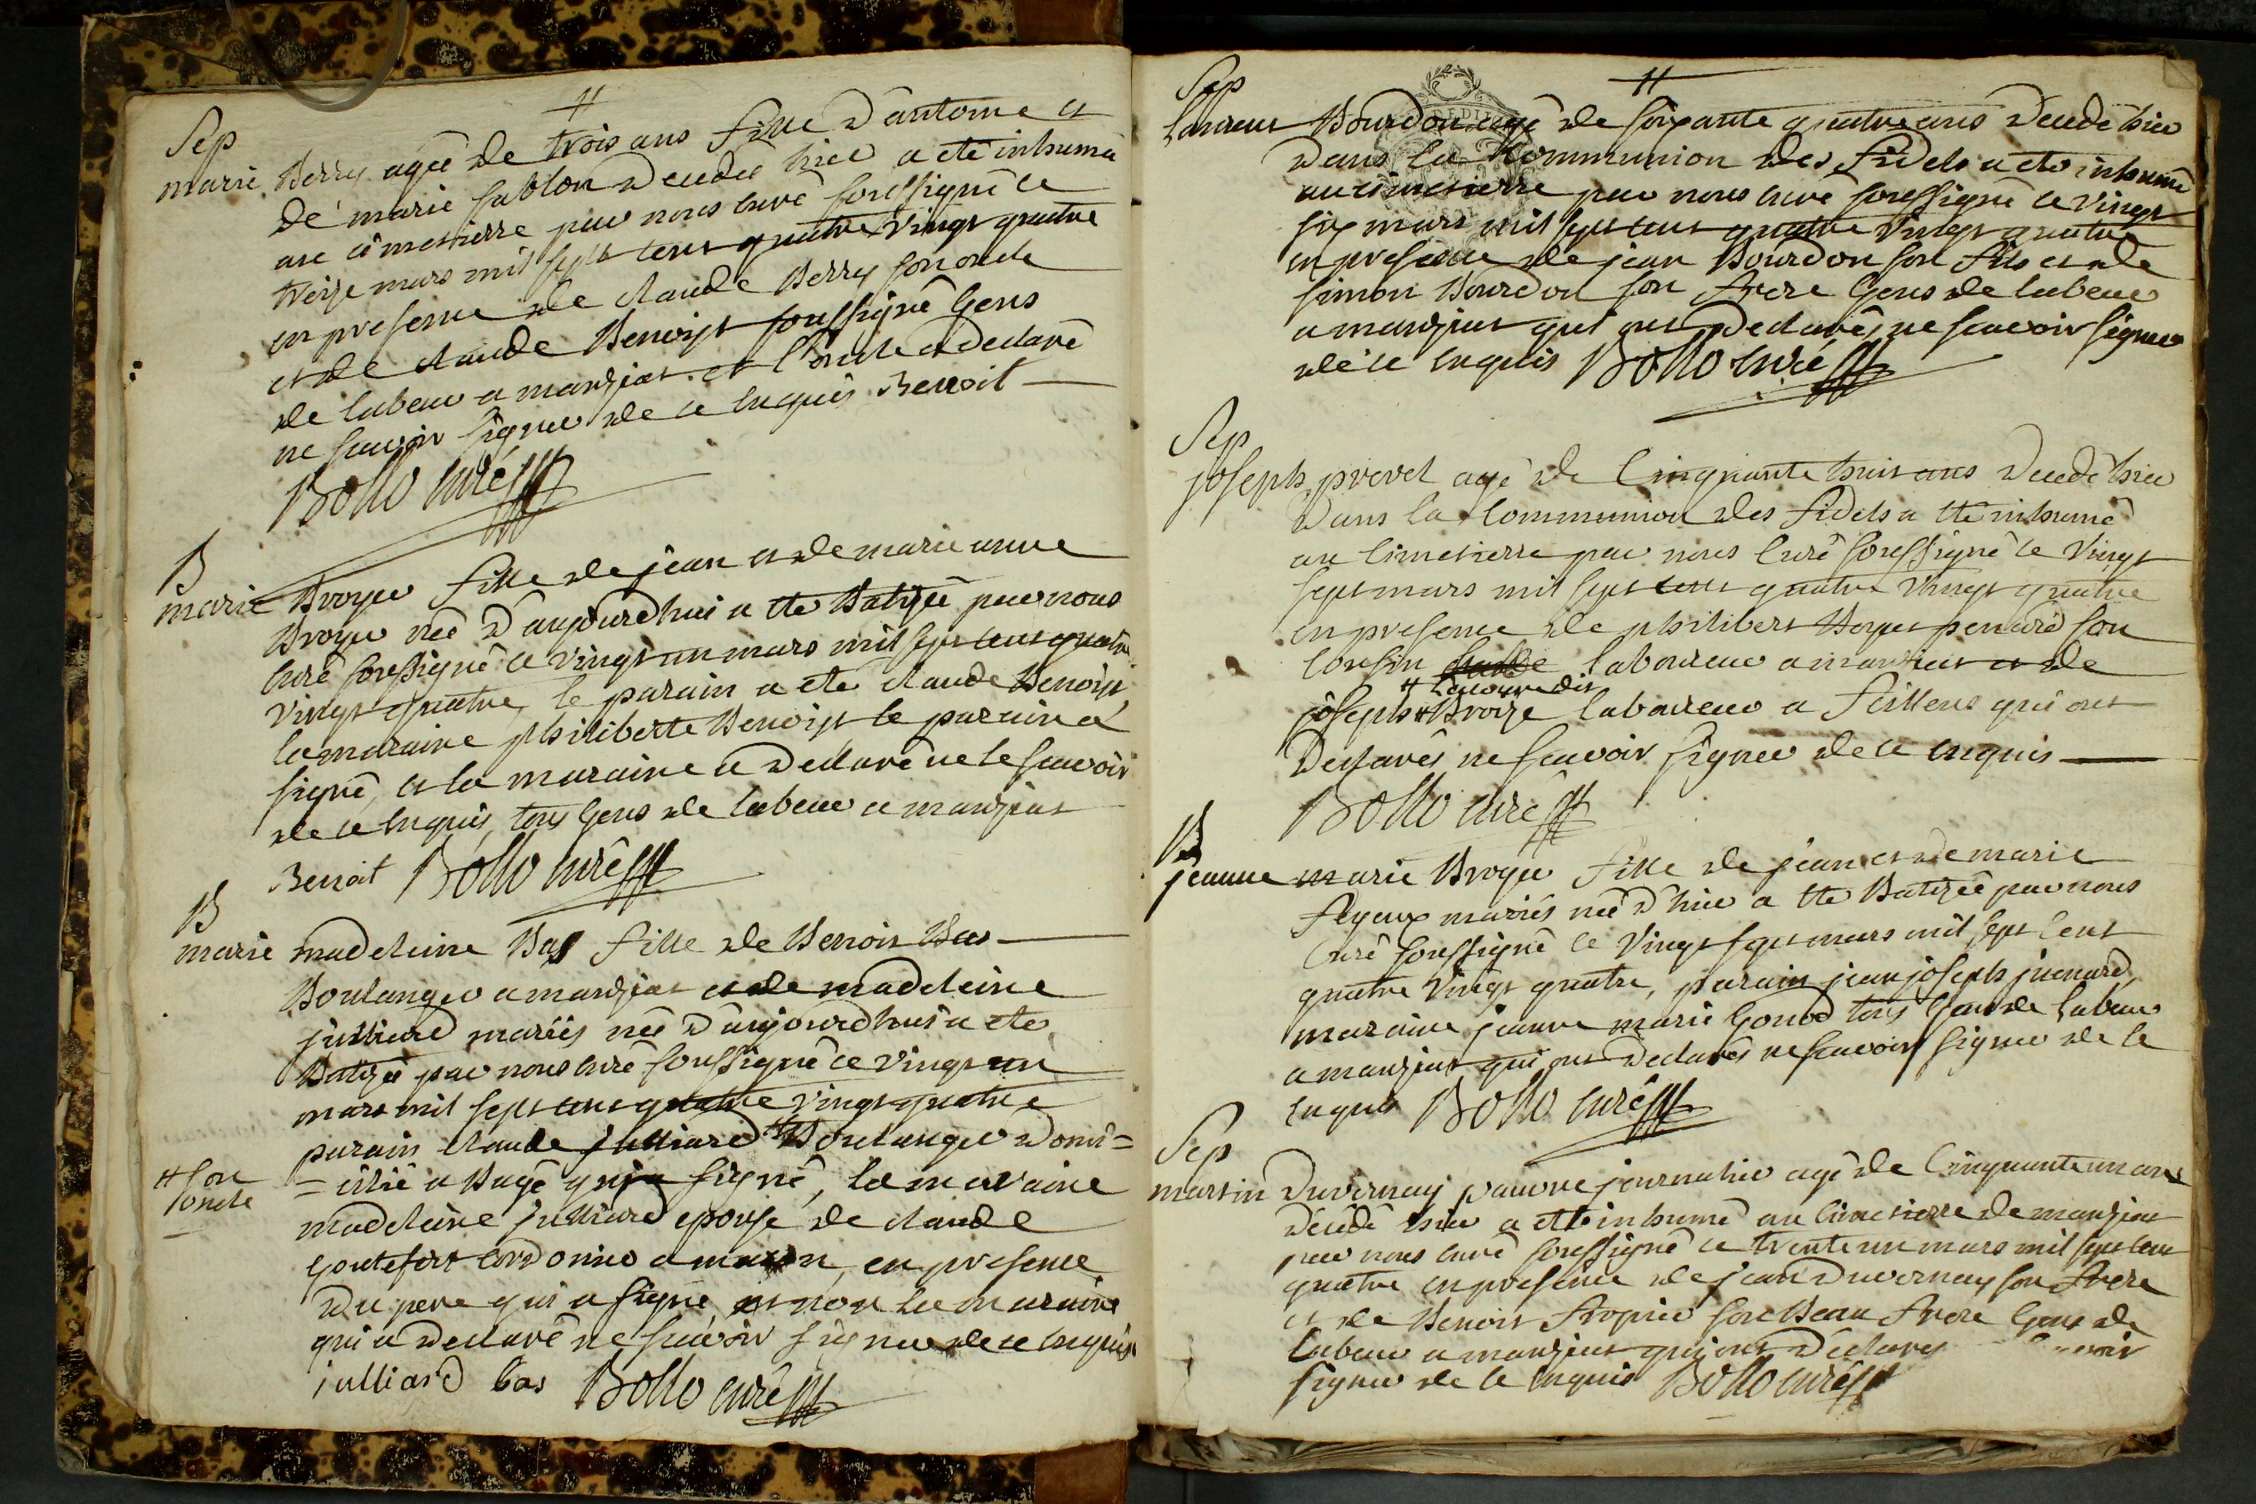 Sep
marie Berry agée de trois ans fille d'antoine et
de marie sablon decedée hier a eté inhumée
au cimetierre par nous curé soussigné ce
treize mars mil sept cent quatre vingt quatre
en presence de claude Berry son oncle
et de claude Benoist soussigné Gens
de labeur a manziat et l'oncle a declaré
ne scavoir signer de ce enquis Benoit
Bollo curé
B
marie Broyer fille de jean et de marie anne
Broyer née d'aujourdhui a ete Batizée par nous
curé soussigné ce vingt un mars mil sept cent quatre
vingt quatre, le parain a eté claude Benoist
la maraine philiberte Benoist le parain a
signé, et la maraine a declaré ne le scavoir
de ce enquis, tous Gens de labeur a manziat
Benoit Bollo curé
B
marie madeleine Bas fille de Benoit Bas
Boulanger a manziat et de madeleine
julliard mariés née d'aujourdhui a ete
Batizée par nous curé soussigné ce vingt un
mars mil sept cent quatre vingt quatre
parain claude julliard # Boulanger domi=
# son
oncle
=cilié a Bagé qui a signé, la maraine
madeleine julliard epouse de claude
goutefert cordonnier a macon, en presence
du pere qui a signé et non la maraine
qui a declaré ne scavoir signer de ce enquis
julliard bas Bollo curé
Sep
Laurent Bourdon agé de soixante quatre ans decedé hier
dans la Kommunion des fidels a ete inhumé
au cimetierre par nous curé soussigné ce vingt
six mars mil sept cent quatre vingt quatre
en presence de jean Bourdon son fils et de
simon Bourdon son frere Gens de labeur
a manziat qui ont declarés ne scavoir signer
de ce enquis Bollo curé
Sep
joseph prevel agé de Cinquante huit ans decedé hier
dans la Communion des fidels a ete inhumé
au Cimetierre par nous Curé soussigné ce vingt
sept mars mil sept cent quatre vingt quatre
en presence de philibert Boyer penard son
Cousin laboureur a manziat et de
joseph # Broize laboureur a feillens qui ont
declarés ne scavoir signer de ce enquis
Bollo curé
B
jeanne marie Broyer fille de jean et de marie
feyeux mariés née d'hier a ete Batizée par nous
Curé soussigné ce vingt sept mars mil sept Cent
quatre vingt quatre, parain jean joseph juenard,
maraine jeanne marie Gonod tous Gens de labeur
a manziat qui ont declarés ne scavoir signer de ce
enquis Bollo curé
Sep
martin Duvernay pauvre journalier agé de Cinquante un ans
décédé hier a ete inhumé au Cimetierre de manziat
par nous curé soussigné ce trente un mars mil sept cent
quatre en presence de jean Duvernay son frere
et de Benoit son Beau frere Gens de
labeur a manziat qui ont déclarés
signer de ce enquis Bollo curé